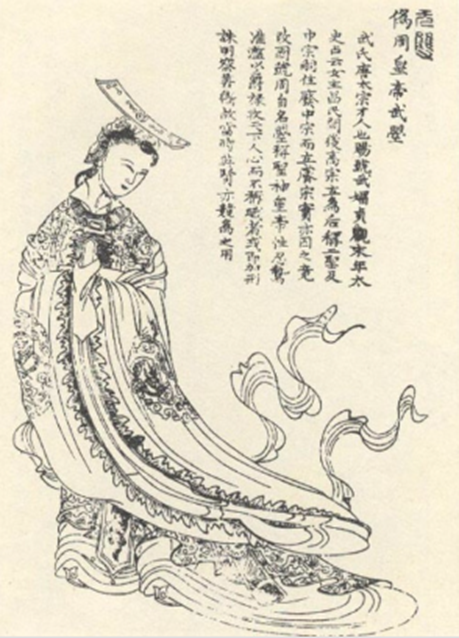 偽周皇帝武曌
武氏唐太宗才人也賜號武媚貞觀末年太
史占云女主昌民間後高宗立為后稱二聖及
中宗嗣位廢中宗而立睿宗實亦囚之竟
改國號周自名曌稱聖神皇帝性忍鷙
濫以爵祿收天下人心而不稱職者或即加刑
誅明察善斷故當時英賢亦競為之用